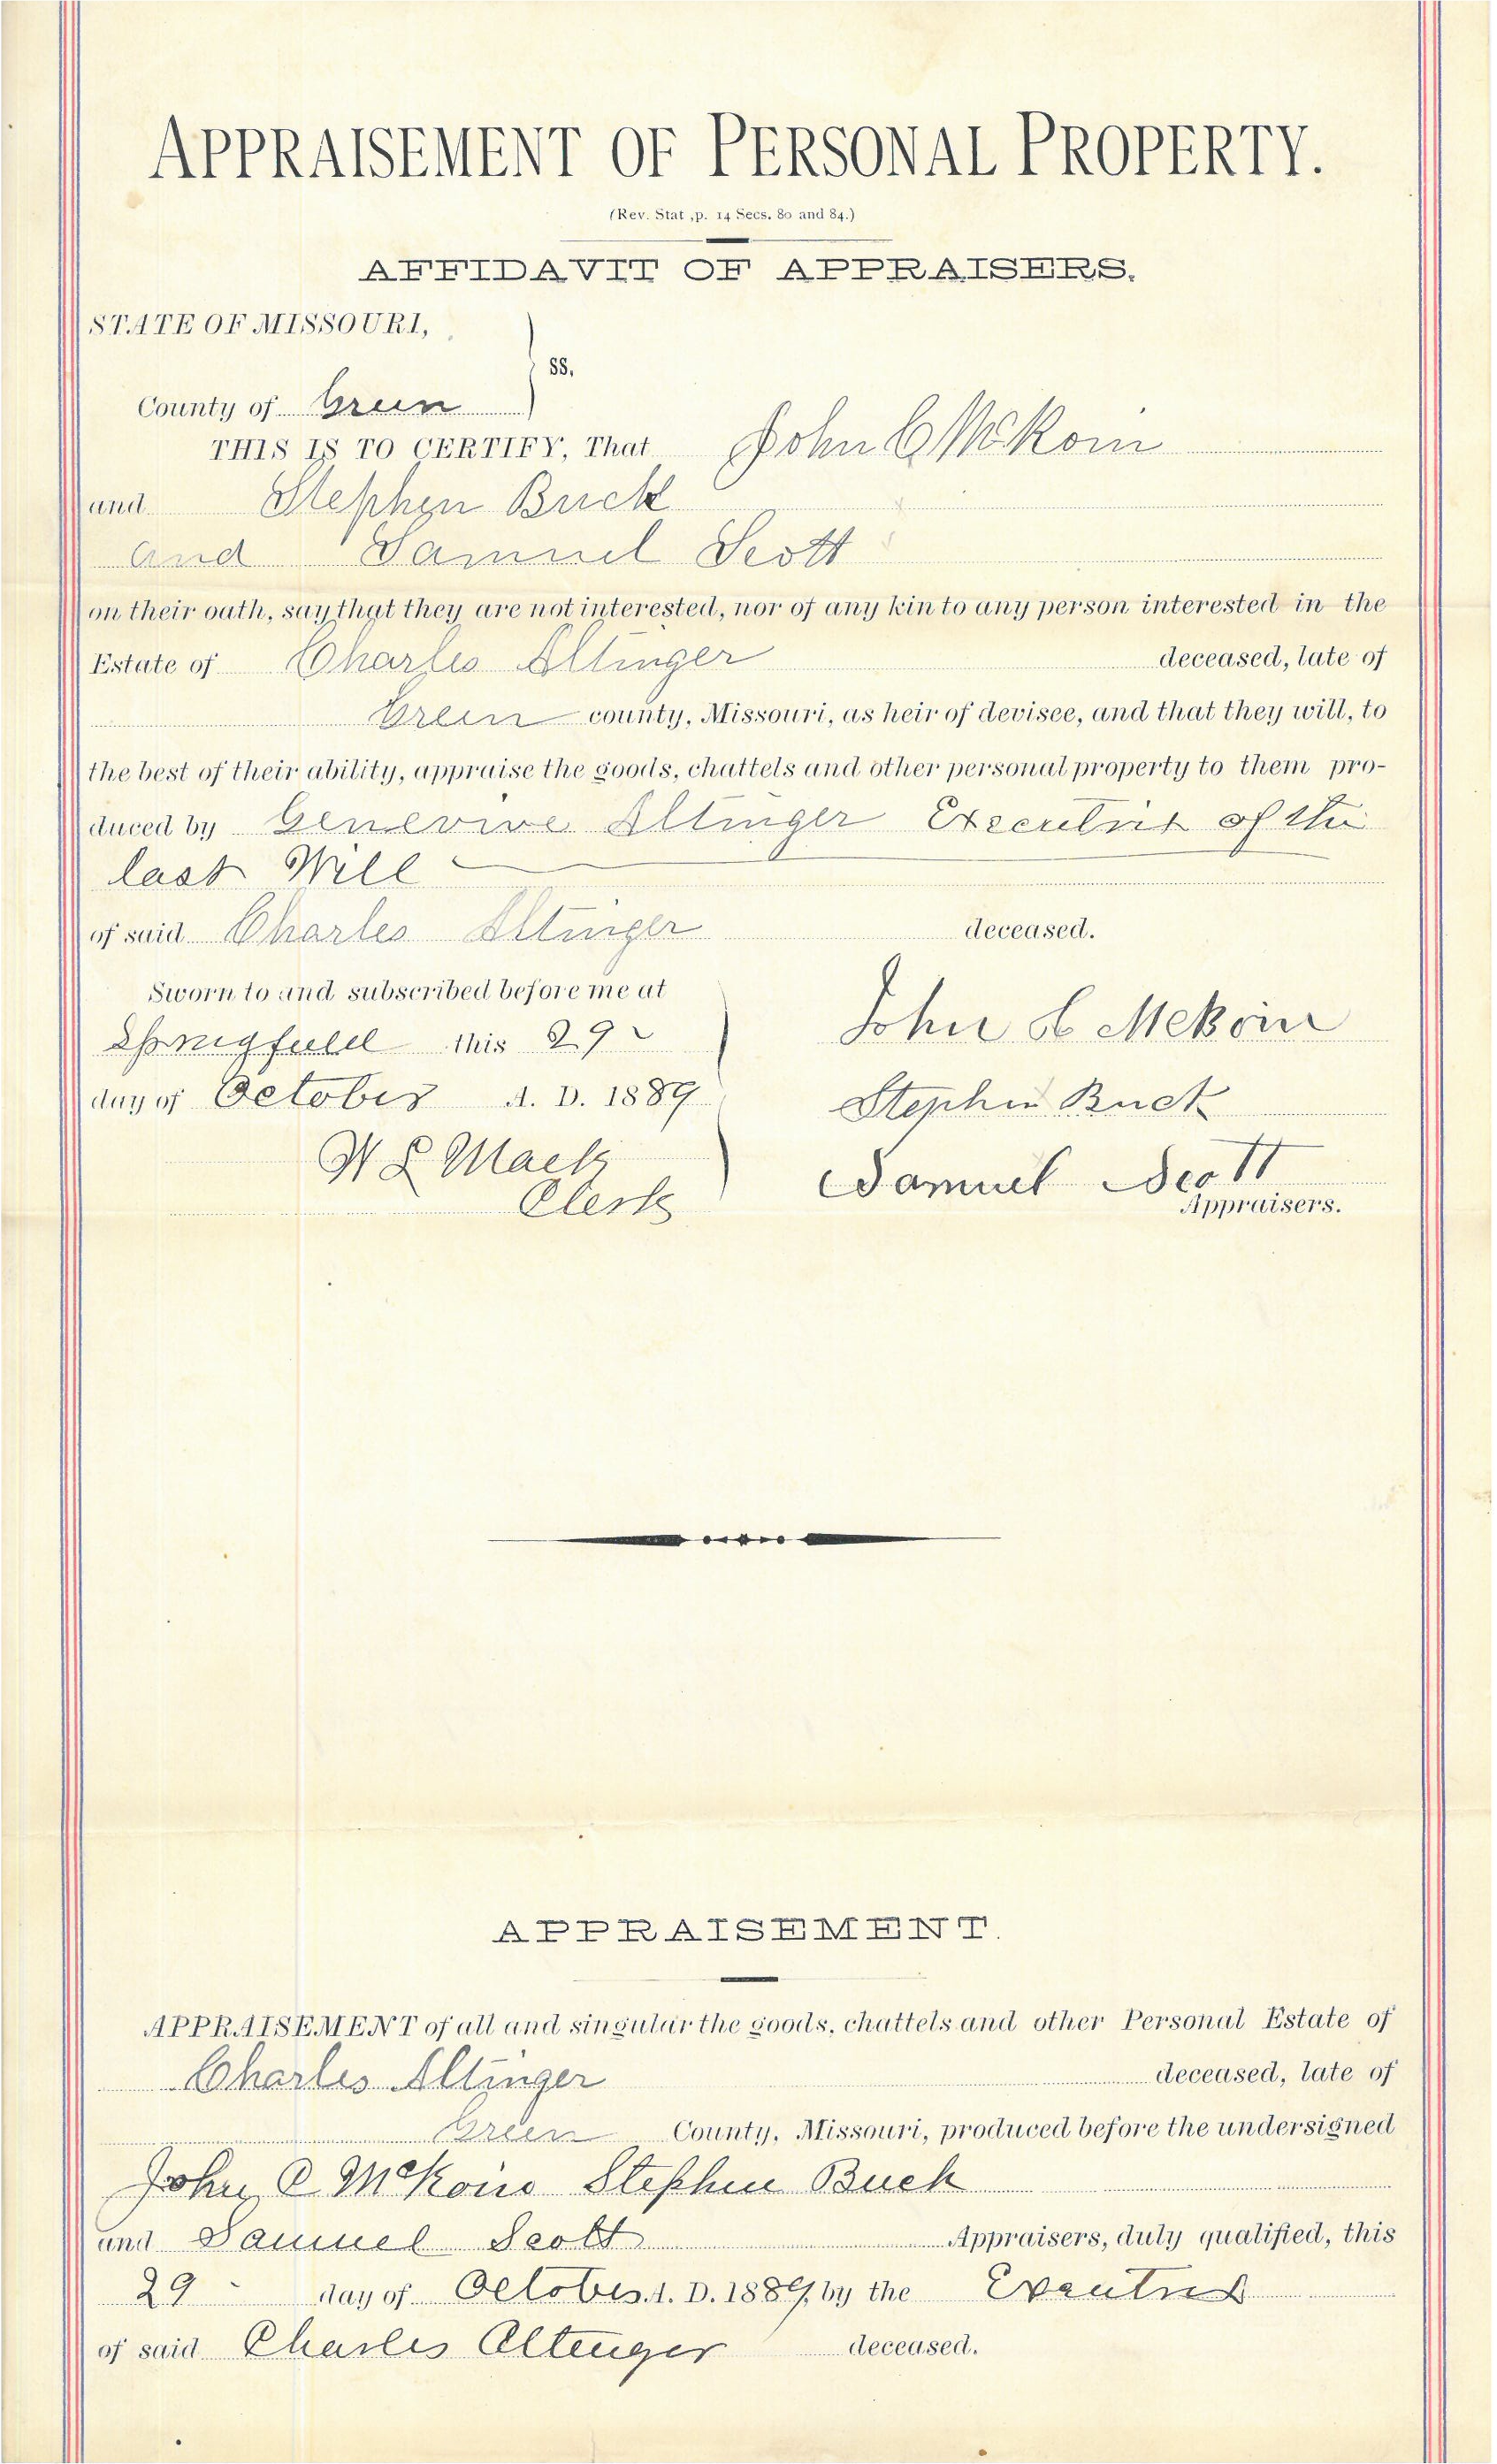 APPRAISEMENT OF PERSONAL PROPERTY.
(Rev. Stat ,p. 14 Secs. 80 and 84.)
AFFIDAVIT OF APPRAISERS.
STATE OF MISSOURI,
ss.
County of Green
THIS IS TO CERTIFY, That John C McKoin
and Stephen Buck
and Samuel Scott
on their oath, say that they are not interested, nor of any kin to any person interested in the
Estate of Charles Altinger deceased, late of
Green county, Missouri, as heir of devisee, and that they will, to
the best of their ability, appraise the goods, chattels and other personal property to them pro-
duced by Genevive Altinger Executrix of the
last Will
of said Charles Altinger deceased.
Sworn to and subscribed before me at
Springfield this 29
day of October A. D. 1889
W L Mack
Clerk
John C McKoin
Stephen Buck
Samuel Scott
Appraisers.
APPRAISEMENT.
APPRAISEMENT of all and singular the goods, chattels and other Personal Estate of
Charles Altinger deceased, late of
Green County, Missouri, produced before the undersigned
John C McKoin Stephen Buck
and Samuel Scott Appraisers, duly qualified, this
29 day of October A. D. 1889, by the Executrix
of said Charles Altenger deceased.